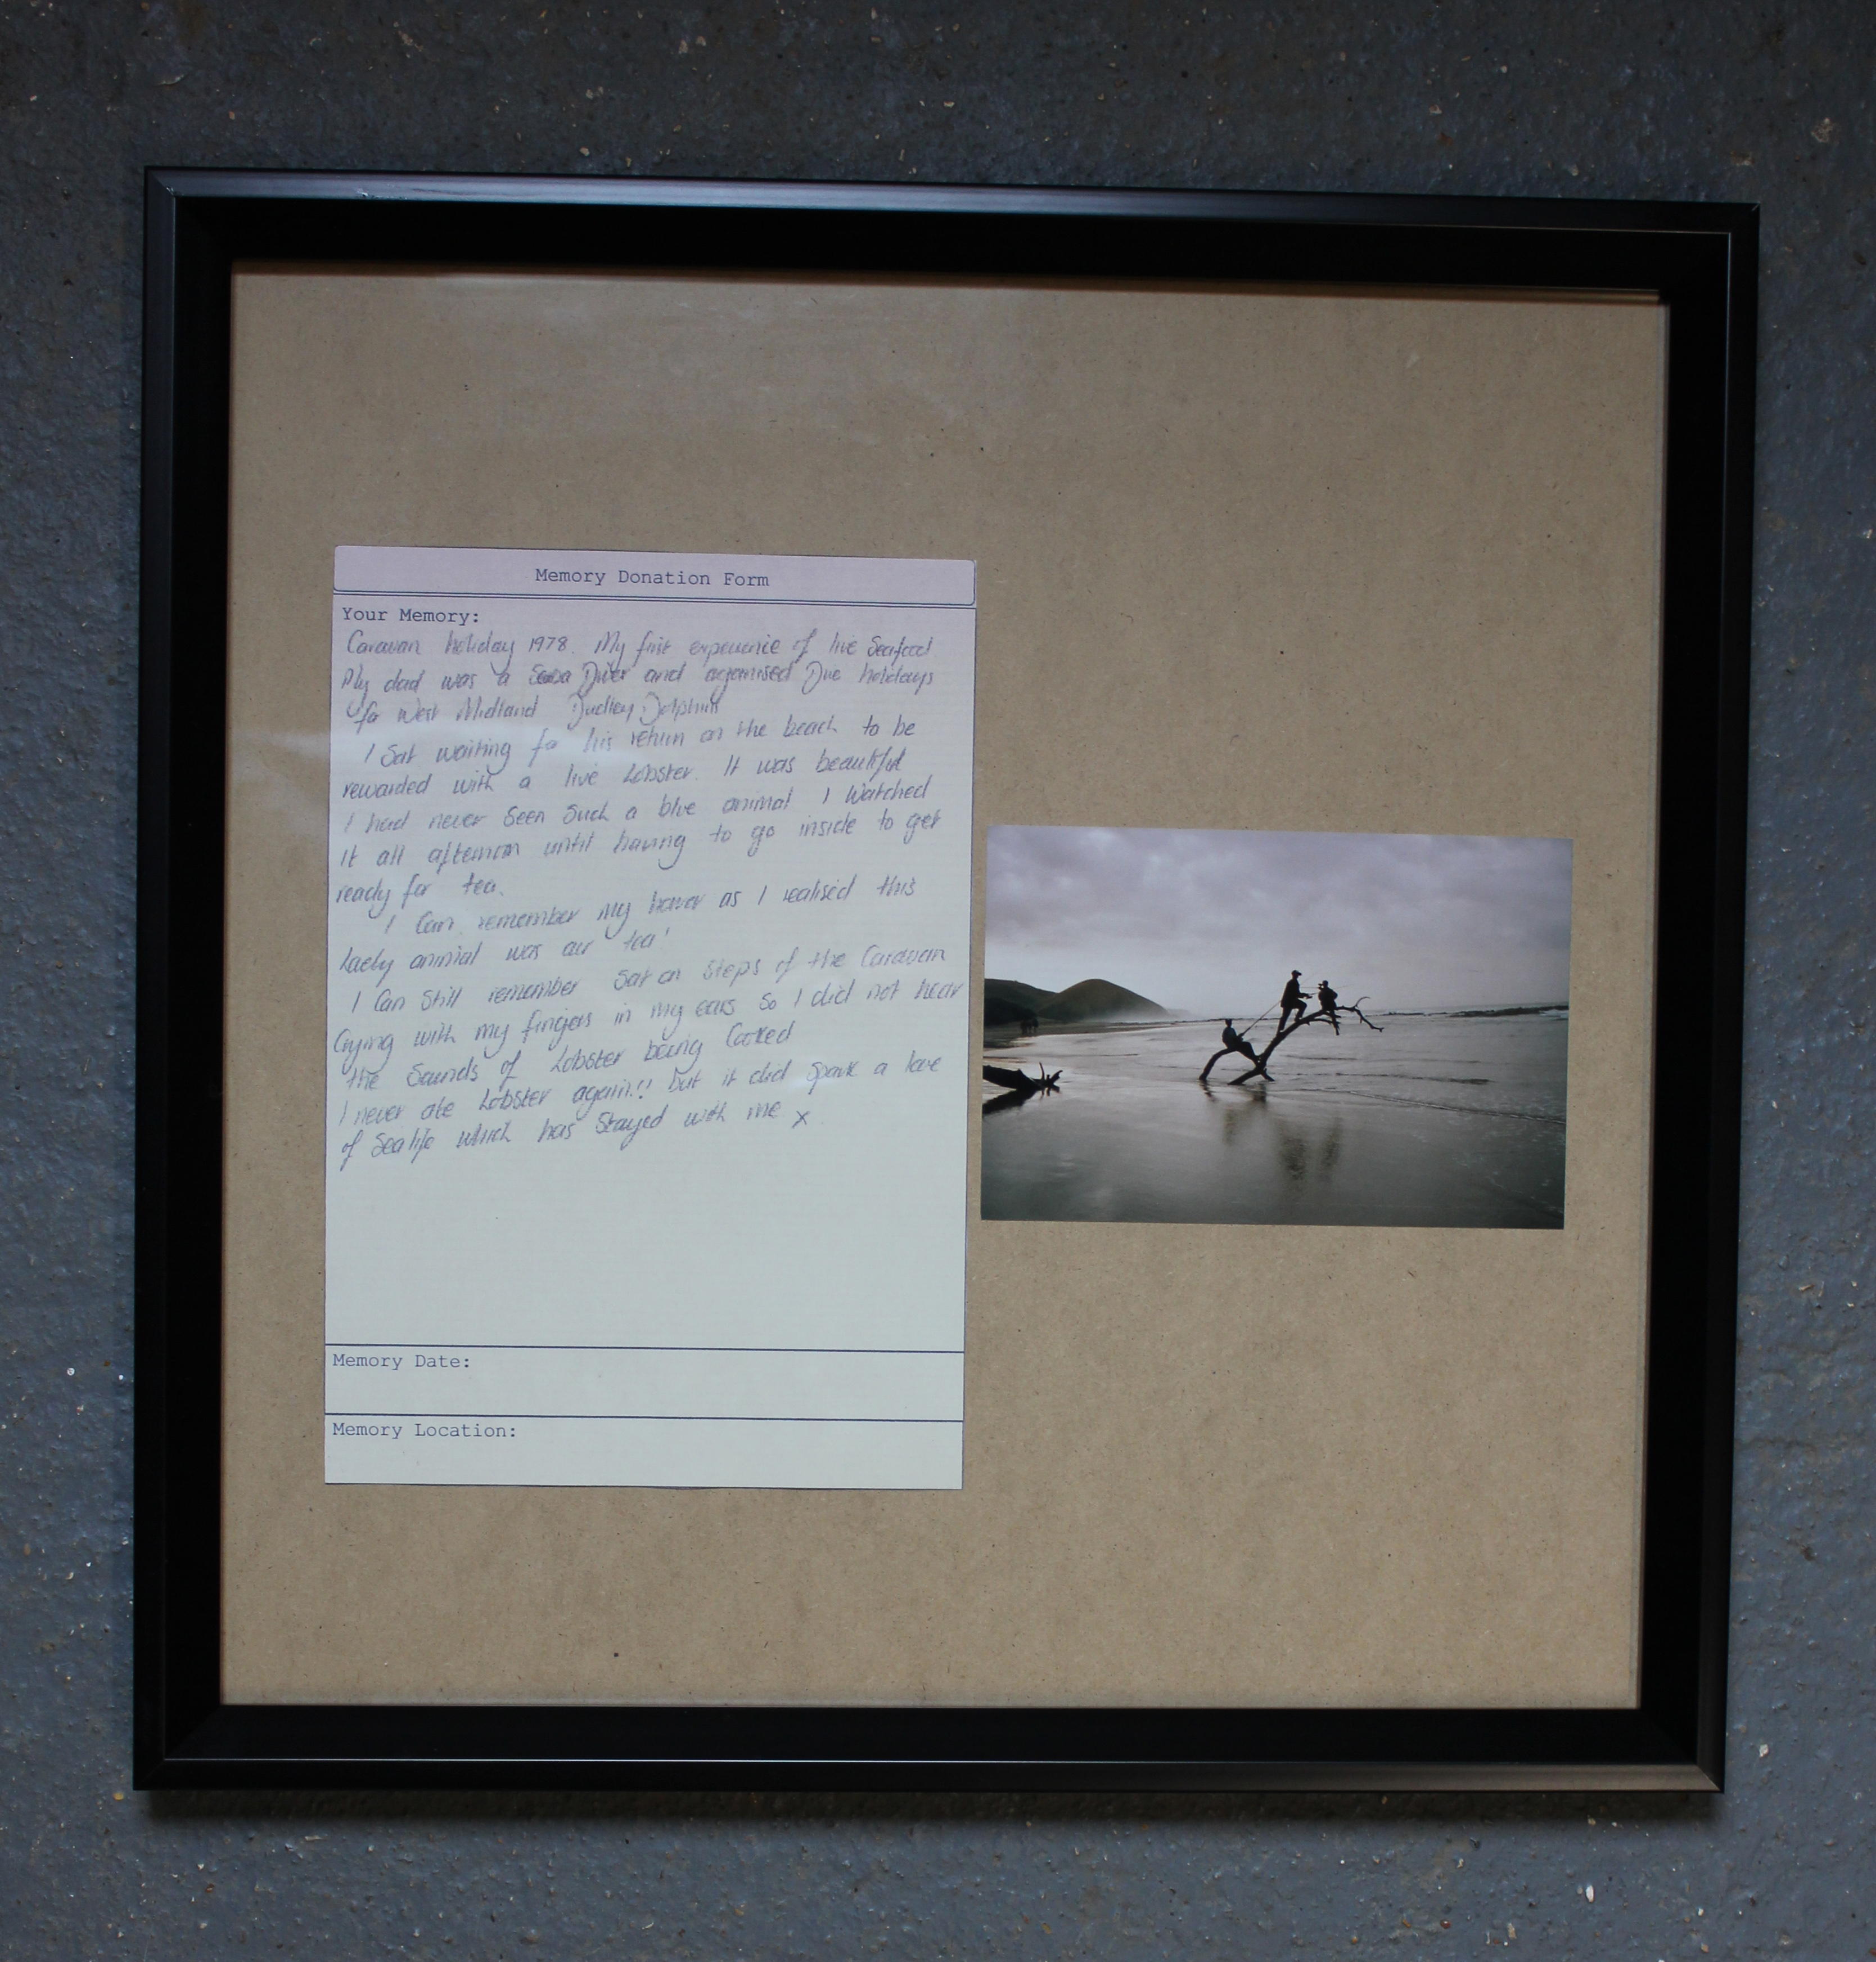 Memory Donation Form
Your Memory:
Caravan holiday 1978. My first experience of live Seafood
My dad was a Diver and organised Dive holidays
for West Midland Dudley Dolphin
I Sat waiting for his return on the beach to be
rewarded with a live Lobster. It was beautiful
I had never Seen Such a blue animal I Watched
it all afternoon until having to go inside to get
ready for tea.
I Can remember My horror as I realised this
animal was our tea!
I Can Still remember Sat on Steps of the Caravan
Crying with my fingers in my ears So I did not hear
the Sounds of Lobster being Cooked
I never ate Lobster again!! but it did Spark a love
of Sealife which has Stayed with me x
Memory Date:
Memory Location: